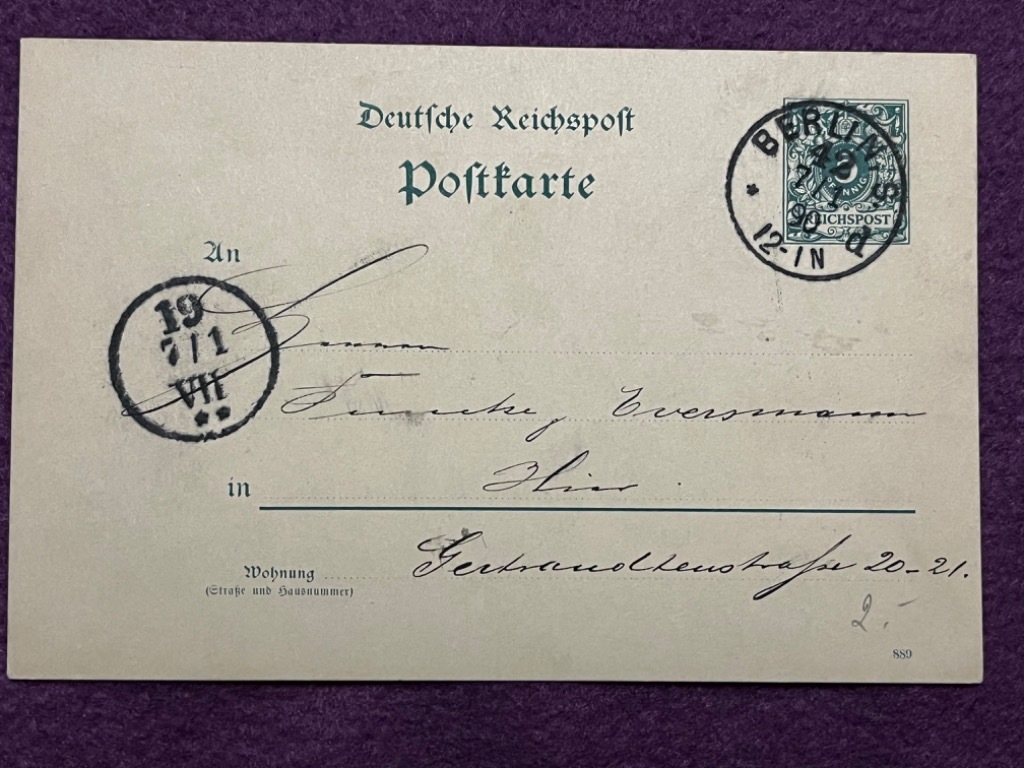 Deutsche Reichspost
Postkarte
BERLIN S.
42
7/1
90
12-1N
d
5
PFENNIG
REICHSPOST
An
19
7/1
VII
**
Herren
Funcke, Eversmann
in Hier.
Wohnung Gertraudtenstraße 20-21.
(Straße und Hausnummer)
2.-
889